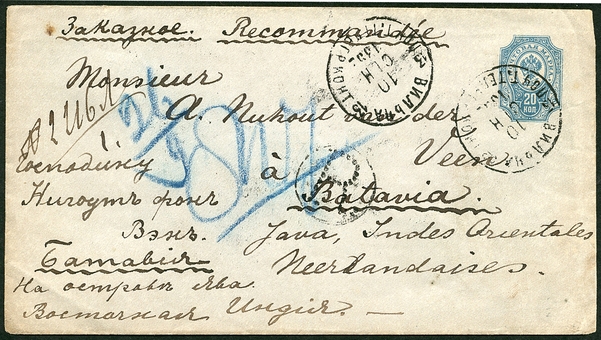 Заказное. Recommandée
Monsieur
A. Nuhout van der
Veen
à
Batavia.
Java, Indes Orientales
Neerlandaises.
Господину
Нигоутъ фонъ
Вэнъ.
Батавия
На островѣ Ява.
Восточная Индія. —
20
КОП
ВИЛЬНА
10